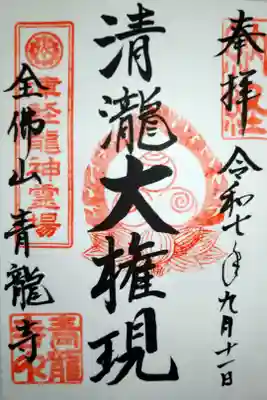 奉拝
令和七年九月十一日
清瀧大権現
全佛山青龍寺
龍神霊場